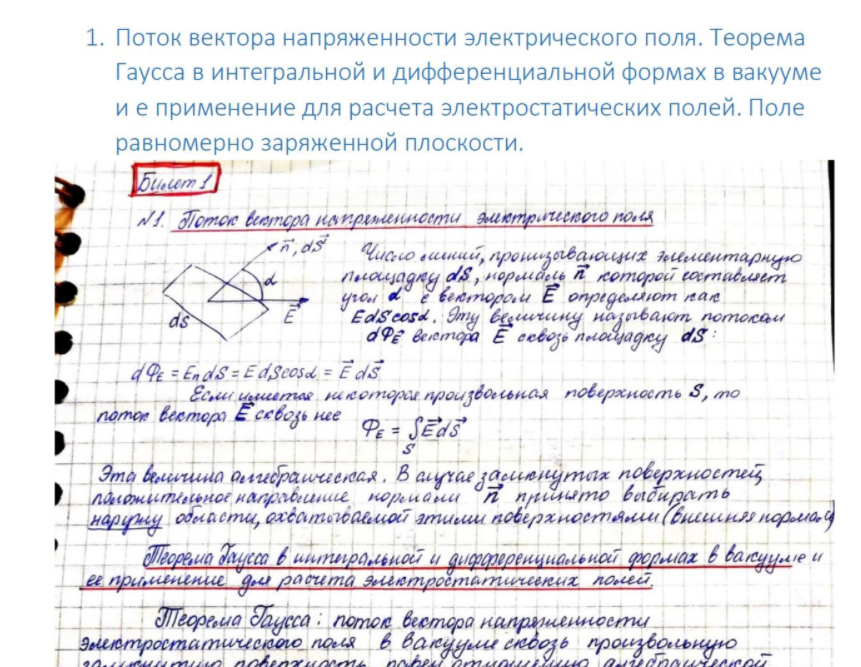 1. Поток вектора напряженности электрического поля. Теорема
Гаусса в интегральной и дифференциальной формах в вакууме
и е применение для расчета электростатических полей. Поле
равномерно заряженной плоскости.
Билет 1
№1. Поток вектора напряженности электрического поля
n⃗, dS⃗
α
E⃗
dS
Число линий, пронизывающих элементарную
площадку dS, нормаль n⃗ которой составляет
угол α с вектором E⃗ определяют как
EdScosα. Эту величину называют потоком
dΦE вектора E⃗ сквозь площадку dS:
dΦE = EndS = EdScosα = E⃗ dS⃗
Если имеется некоторая произвольная поверхность S, то
поток вектора E⃗ сквозь нее
ΦE = ∫E⃗dS⃗
S
Эта величина алгебраическая. В случае замкнутых поверхностей
положительное направление нормали n⃗ принято выбирать
наружу области, охватываемой этими поверхностями (внешняя нормаль)
Теорема Гаусса в интегральной и дифференциальной формах в вакууме и
ее применение для расчета электростатических полей.
Теорема Гаусса: поток вектора напряженности
электростатического поля в вакууме сквозь произвольную
замкнутую поверхность равен отношению алгебраической